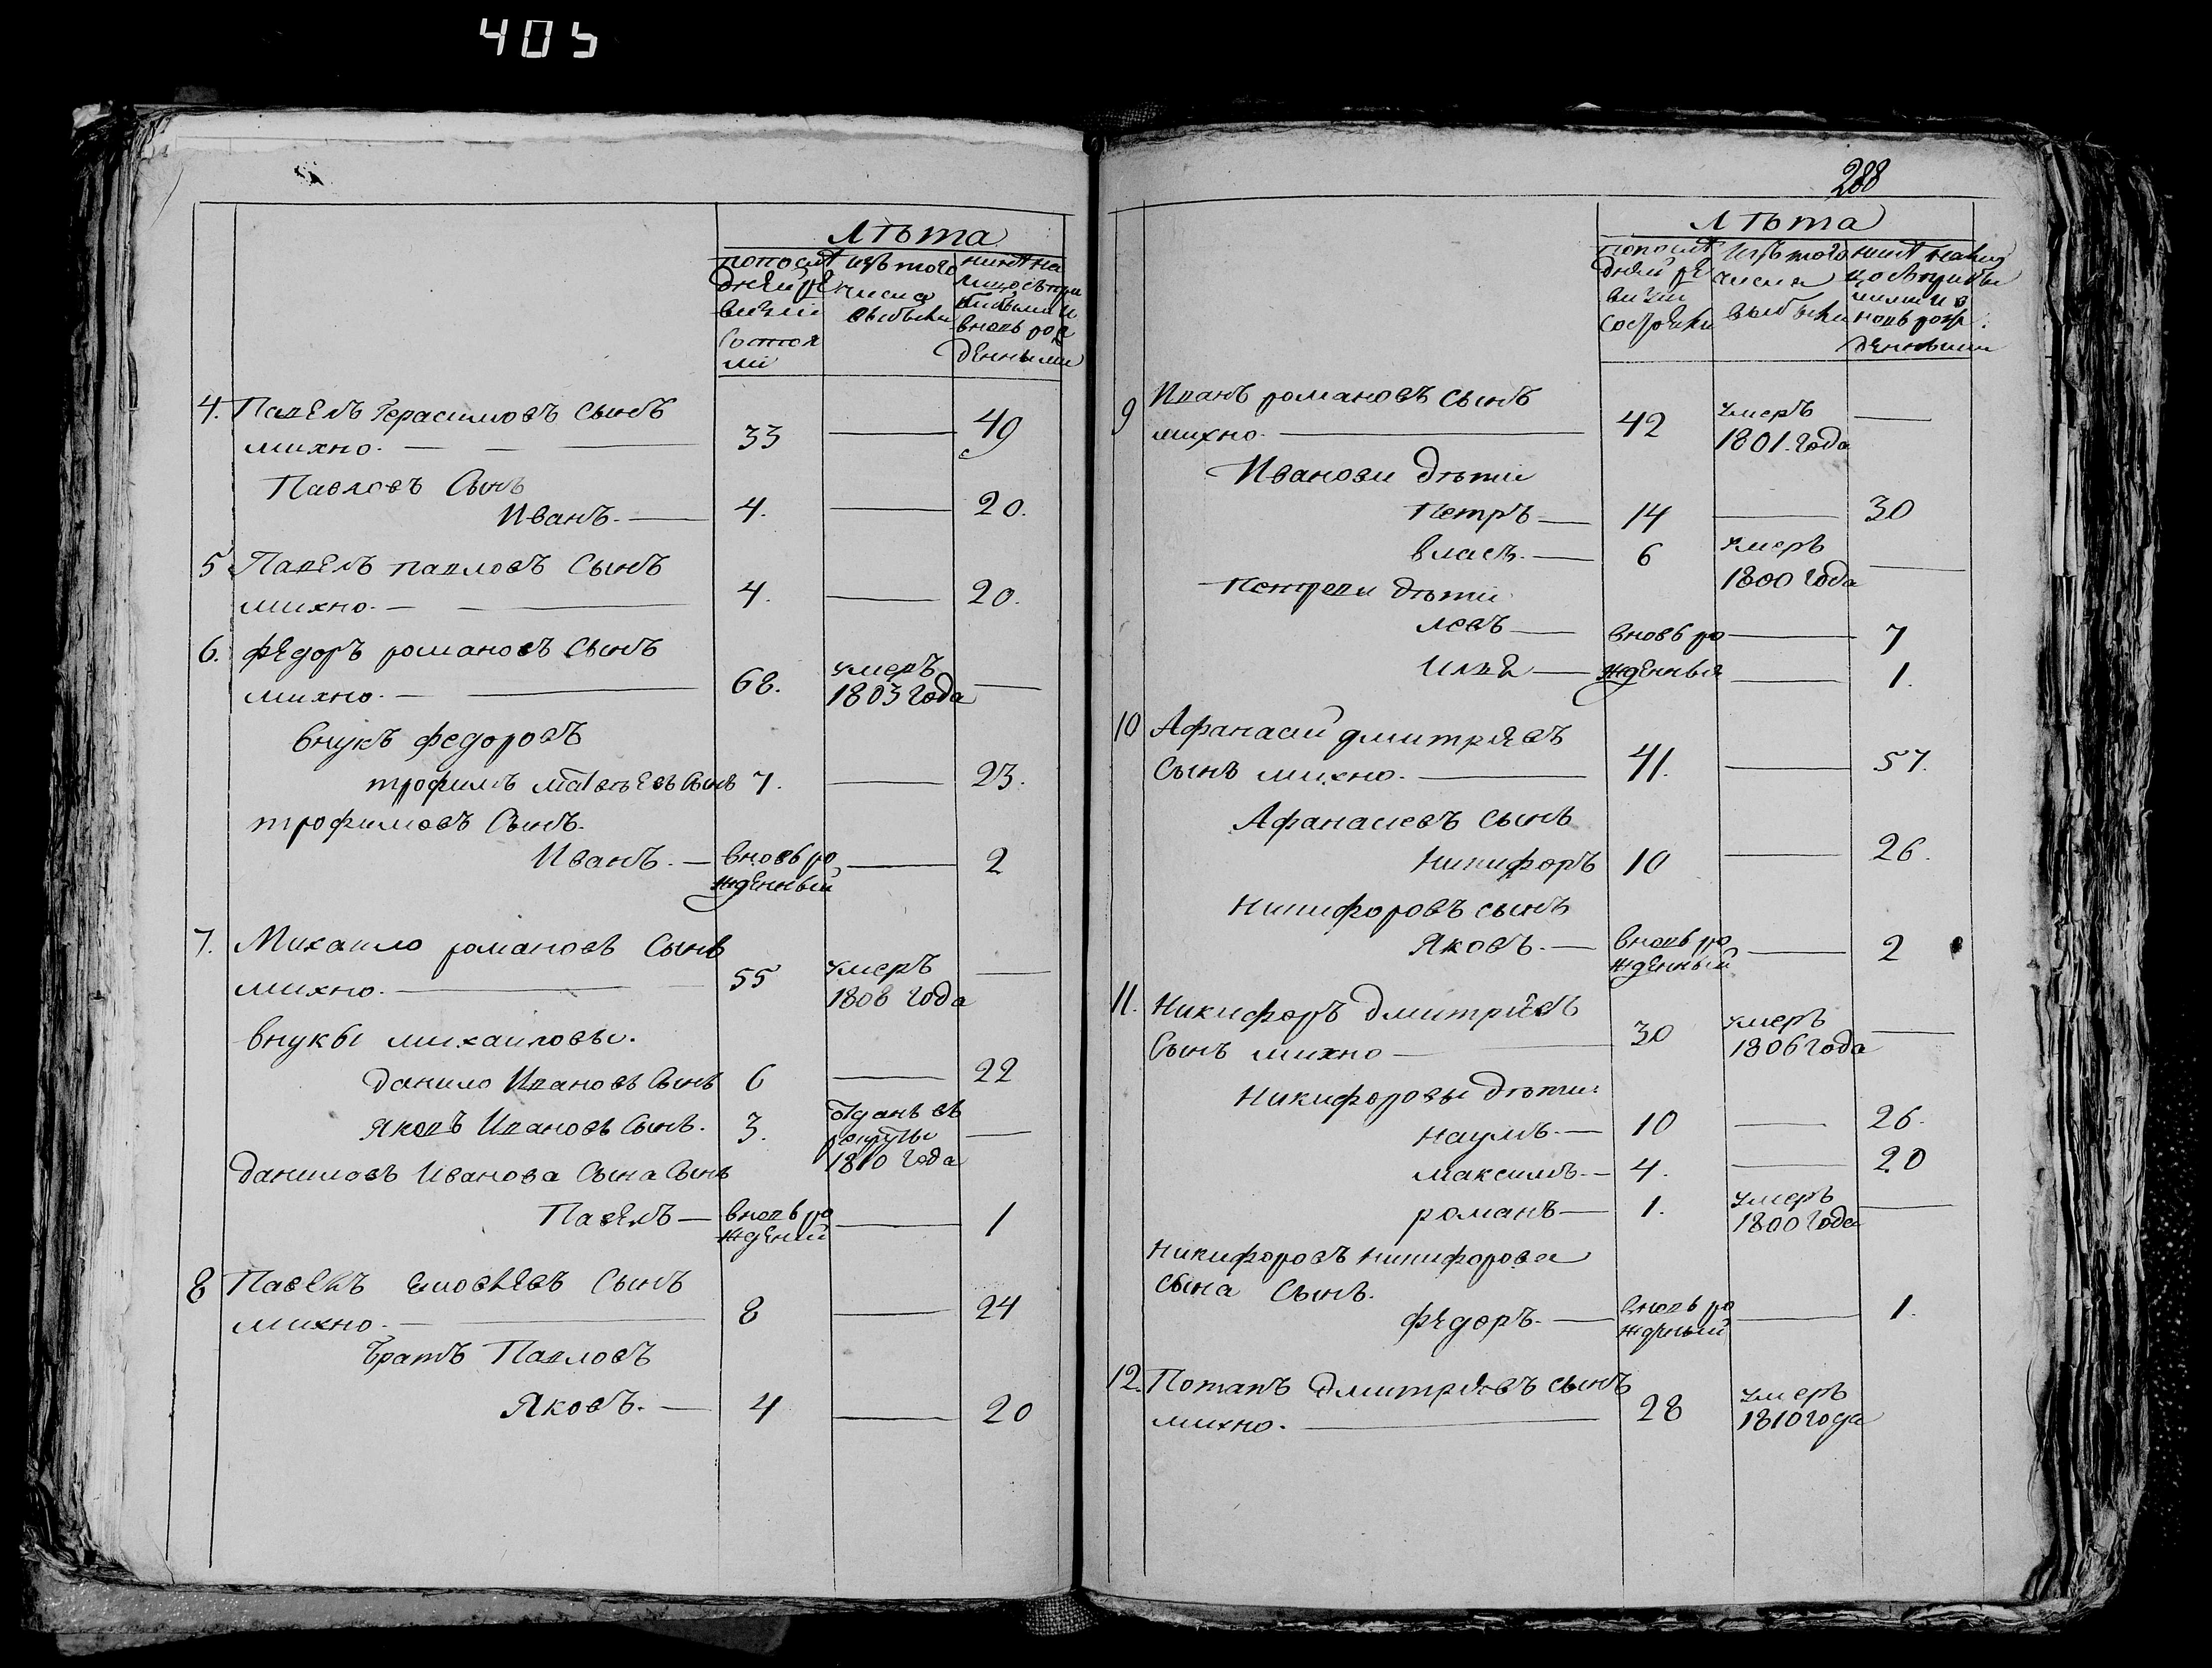 405
Лѣта
попослѣ изъ того нынѣ на
дней ре числа лицо съ при
визіи выбыли былыми и
состоя вновь рож
ли денными
4. Павелъ Герасимовъ сынъ
михно. — 33 — 49
Павловъ Сынъ
Иванъ. — 4. — 20.
5 Павелъ павловъ Сынъ
михно. — 4. — 20.
6. федоръ романовъ сынъ
михно. — 68. умеръ 1803 года —
внукъ федоровъ
трофимъ матвѣевъ Сынъ 7. — 23.
трофимовъ Сынъ.
Иванъ. — вновь ро
жденный — 2
7. Михаило романовъ Сынъ
михно. — 55 умеръ 1808 года —
внукы михаиловы.
данило Ивановъ Сынъ 6 — 22
яковъ Ивановъ Сынъ. 3. отданъ въ рекруты 1810 года —
даниловъ Иванова Сына Сынъ
Павелъ — вновь ро
жденый — 1
8 Павелъ Сынъ
михно. — 8 — 24
братъ Павловъ
Яковъ. — 4 — 20
288
Лѣта
попослѣ изъ того нынѣ налиц
дней ре числа цо съ прибы
визіи выбыли лыми и в
состояли новь рож
денными
9 Иванъ романовъ сынъ
михно. — 42 умеръ 1801. года —
Ивановы дѣти
Петръ — 14 — 30
власъ. — 6 умеръ 1800 года —
Петровы дѣти
левъ — вновь ро — 7
Илья — жденныя — 1.
10 Афанасий дмитриевъ
Сынъ михно. — 41. — 57.
Афанасиевъ сынъ
Никифоръ 10 — 26.
Никифоровъ сынъ
Яковъ. — вновь ро
жденный — 2
11. Никифоръ дмитриевъ
Сынъ михно — 30 умеръ 1806 года —
Никифоровы дѣти
наумъ. — 10 — 26.
максимъ. — 4. — 20
романъ — 1. умеръ 1800 года —
Никифоровъ никифорова
сына Сынъ.
федоръ. — вновь ро
жденый — 1.
12. Потапъ дмитриевъ сынъ
михно. — 28 умеръ 1810 года